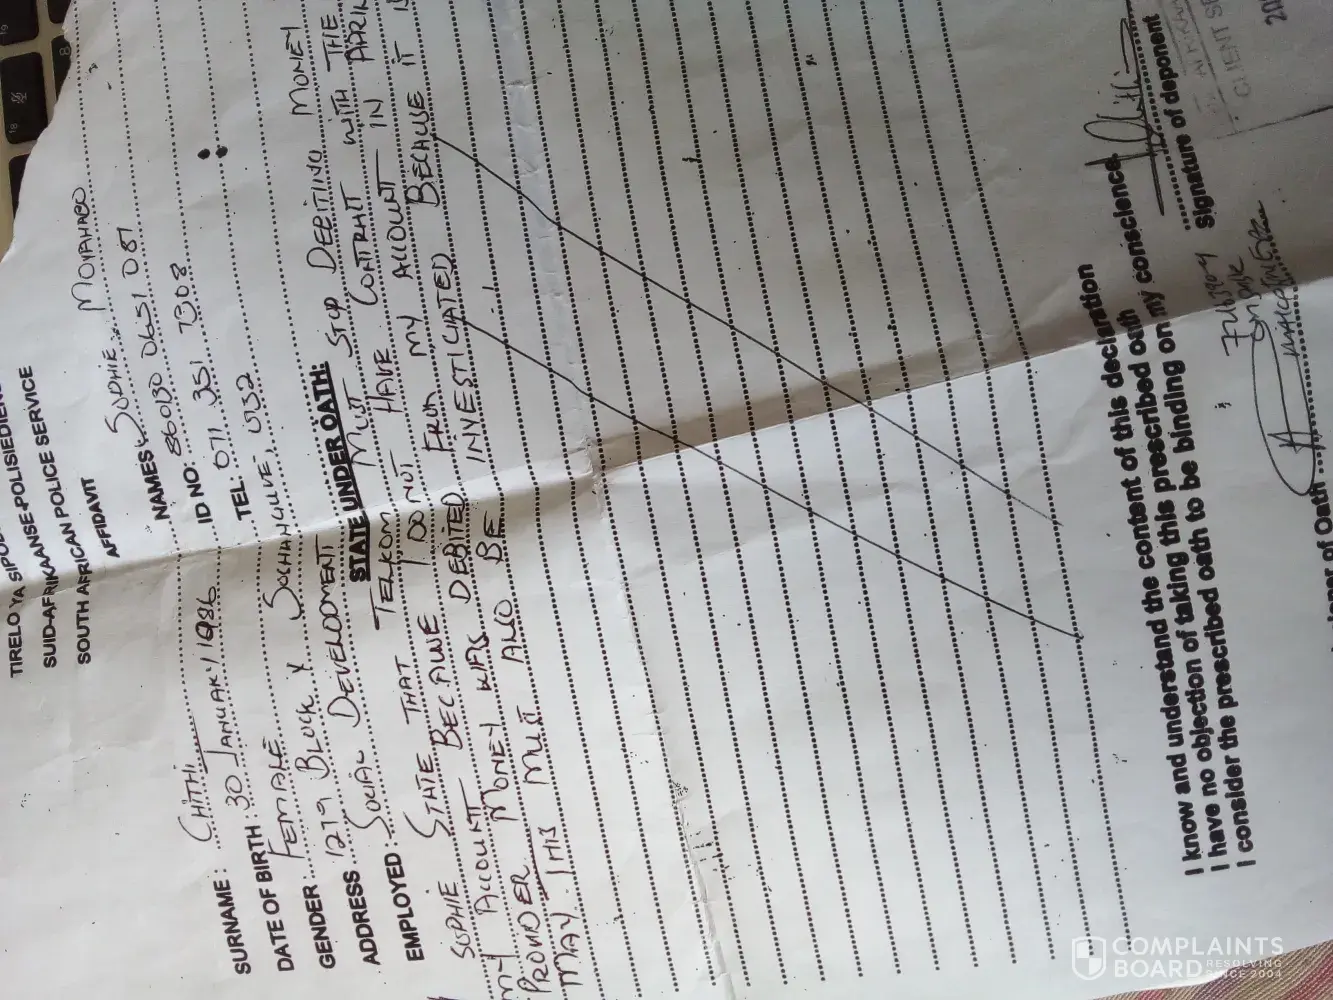 TIRELO YA SIPO
SUID-AFRIKAANSE POLISIEDIENS
SUID-AFRIKAANSE POLICE SERVICE
SOUTH AFRICAN
AFFIDAVIT
SURNAME: CHITHI NAMES: SOPHIE MOYAHABO
DATE OF BIRTH: 30 JANUARY 1986 ID NO: 860130 0651 087
GENDER FEMALE TEL: 071 351 7308
ADDRESS 1279 BLOCK Y SOSHANGUVE, 0152
EMPLOYED: SOCIAL DEVELOPMENT
STATE UNDER OATH:
SOPHIE STATE THAT TELKOM MUST STOP DEBITING MONEY
MY ACCOUNT BECAUSE I DO NOT HAVE CONTRACT WITH THE
PROVIDER MONEY WAS DEBITED FROM MY ACCOUNT IN APRIL
MAY THIS MUST ALSO BE INVESTIGATED BECAUSE IT IS
I know and understand the content of this declaration
I have no objection of taking this prescribed oath
I consider the prescribed oath to be binding on my conscience
Signature of deponent
CLIENT SE
of Oath
COMPLAINTS
BOARD RESOLVING
SINCE 2004